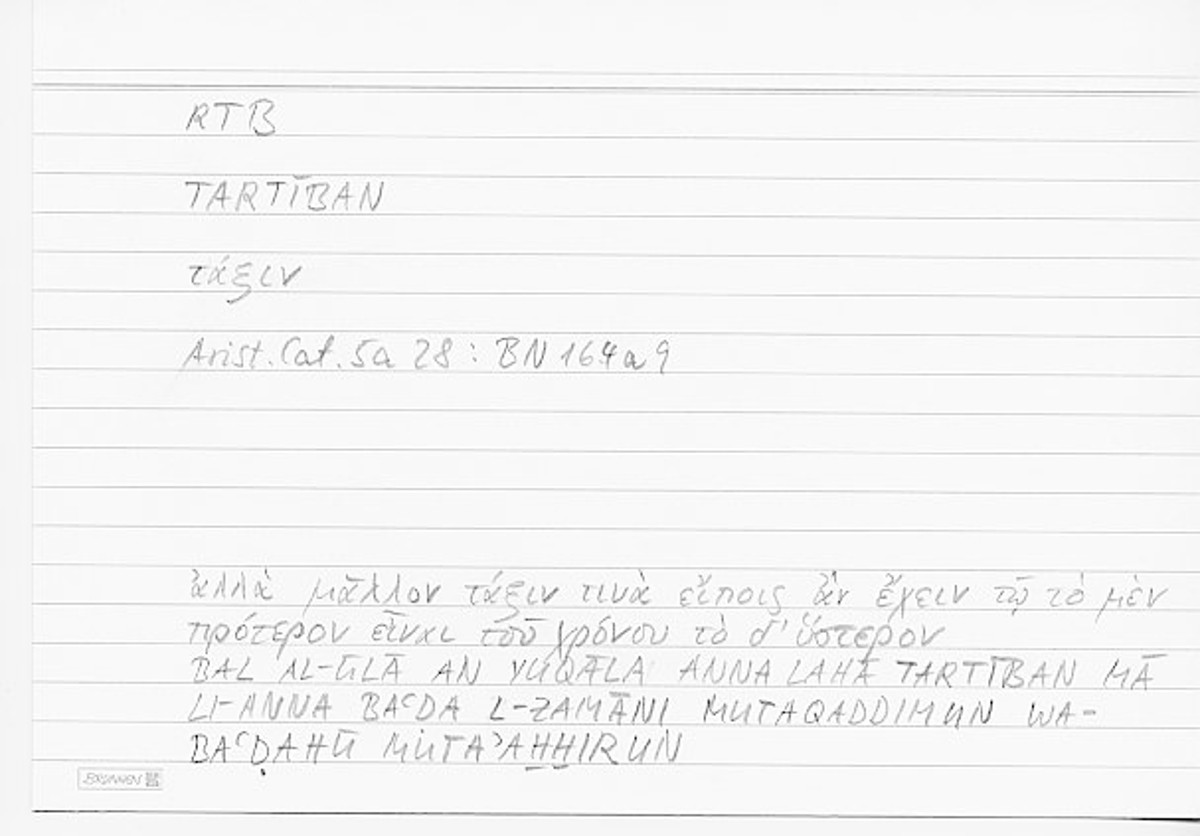 RTB
TARTĪBAN
τάξιν
Arist. Cat. 5a 28 : BN 164a9
ἀλλὰ μᾶλλον τάξιν τινὰ εἴποις ἂν ἔχειν τῷ τὸ μὲν
πρότερον εἶναι τοῦ χρόνου τὸ δ' ὕστερον
BAL AL-ŪLĀ AN YUQĀLA ANNA LAHĀ TARTĪBAN MĀ
LI-ANNA BAʿDA L-ZAMĀNI MUTAQADDIMUN WA-
BAʿḌAHŪ MUTAʾAH̱H̱IRUN
BRUNNEN